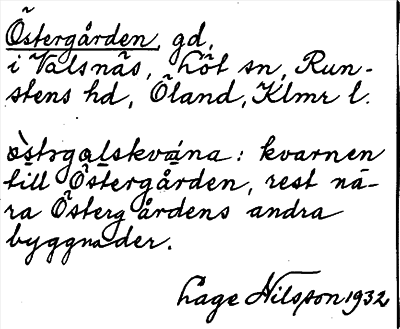 Östergården, gd,
i Valsnäs, Löt sn, Run-
stens hd, Öland, Klmr l.
östergalskvana: kvarnen
till Östergården, rest nä-
ra Östergårdens andra
byggnader.
Lage Nilsson 1932